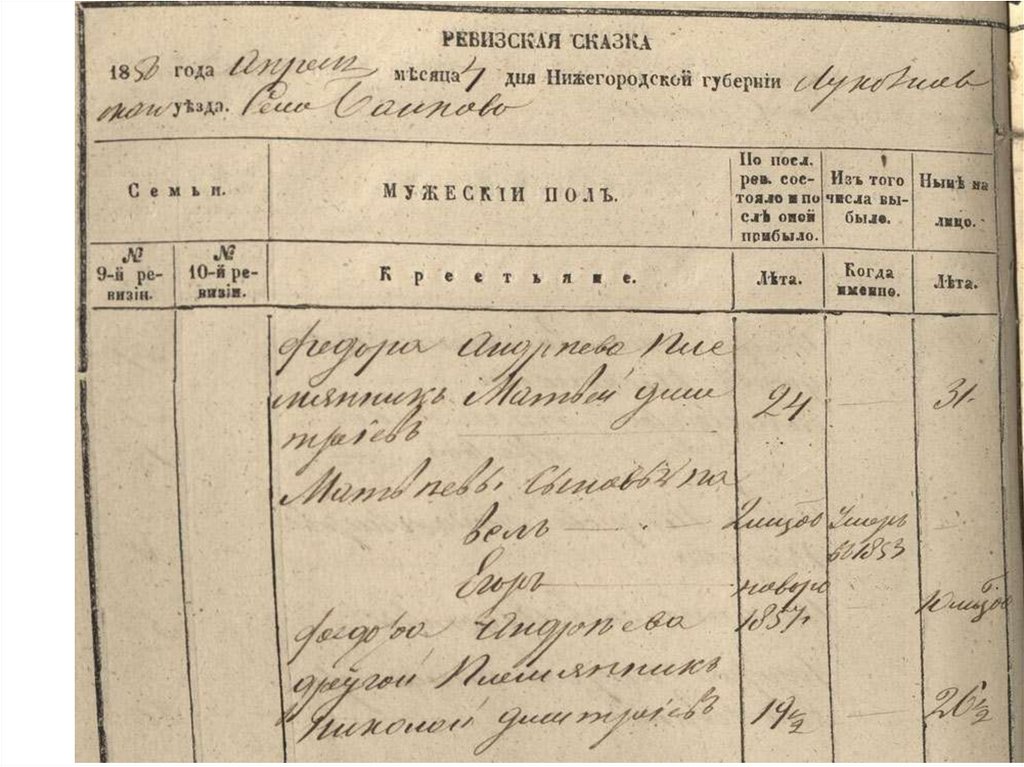 РЕВИЗСКАЯ СКАЗКА
1858 года Апреля мѣсяца 4 дня Нижегородской губерніи Лукоянов
скаго уѣзда. Село
Семьи.
МУЖЕСКІЙ ПОЛЪ.
По посл. рев. сос-
тояло и по
слѣ оной
прибыло.
Изъ того
числа вы-
было.
Нынѣ на
лицо.
№
9-й ре-
визіи.
№
10-й ре-
визіи.
Крестьяне.
Лѣта.
Когда
именно.
Лѣта.
Федора Андрѣева Пле
мянникъ Матвѣй Дми 24 31.
тріевъ
Матвѣевы Сыновья Па
велъ 2 мѣсцов Умеръ
въ 1853
Егоръ новоро
Федора Андрѣева 1857
другой Племянникъ
Николай Дмитріевъ 19 1/2 26 1/2